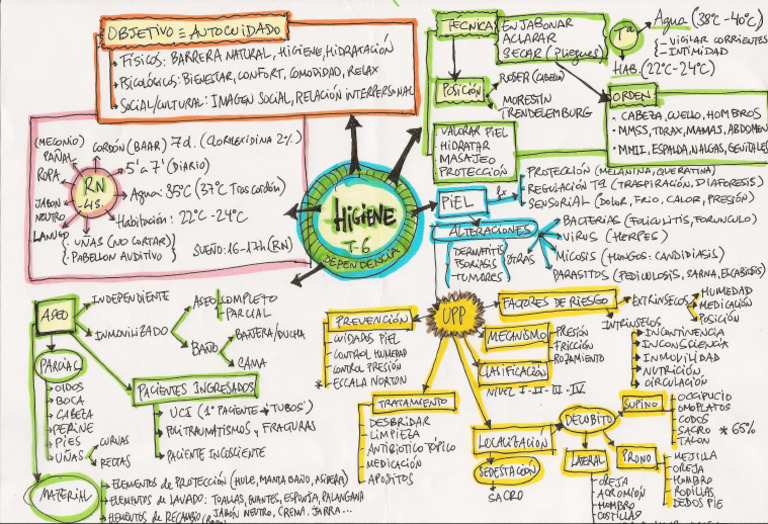 OBJETIVO = AUTOCUIDADO
FÍSICOS: BARRERA NATURAL, HIGIENE, HIDRATACIÓN
PSICOLÓGICOS: BIENESTAR, CONFORT, COMODIDAD, RELAX
SOCIAL/CULTURAL: IMAGEN SOCIAL, RELACIÓN INTERPERSONAL
TÉCNICA
ENJABONAR
ACLARAR
SECAR (Pliegues)
Tª
Agua (38ºC-40ºC)
VIGILAR CORRIENTES
INTIMIDAD
HAB. (22ºC-24ºC)
POSICIÓN
ROSER (CABEZA)
MORESTIN
TRENDELEMBURG
VALORAR PIEL
HIDRATAR
MASAJEO
PROTECCIÓN
ORDEN
CABEZA, CUELLO, HOMBROS
MMSS, TORAX, MAMAS, ABDOMEN
MMII, ESPALDA, NALGAS, GENITALES
RN
-4S.
(MECONIO)
PAÑAL
ROPA
JABON
NEUTRO
LANUGO
CORDÓN (BAAR) 7d. (CLORHEXIDINA 2%)
5' a 7' (DIARIO)
Agua: 35ºC (37ºC Tras cordón)
Habitación: 22ºC-24ºC
UÑAS (NO CORTAR)
PABELLON AUDITIVO
SUEÑO: 16-17h (RN)
HIGIENE
T-6
DEPENDENCIA
PIEL
fx
PROTECCIÓN (MELANINA, QUERATINA)
REGULACIÓN Tª (TRASPIRACIÓN, DIAFORESIS)
SENSORIAL (DOLOR, FRIO, CALOR, PRESIÓN)
ALTERACIONES
DERMATITIS
PSORIASIS
TUMORES
OTRAS
BACTERIAS (FOLICULITIS, FORUNCULO)
VIRUS (HERPES)
MICOSIS (HONGOS: CANDIDIASIS)
PARASITOS (PEDICULOSIS, SARNA, ESCABIOSIS)
ASEO
INDEPENDIENTE
INMOVILIZADO
ASEO
COMPLETO
PARCIAL
BAÑO
BAÑERA/DUCHA
CAMA
PARCIAL
OIDOS
BOCA
CABEZA
PERINE
PIES
UÑAS
CURVAS
RECTAS
PACIENTES INGRESADOS
UCI (1º PACIENTE → "TUBOS")
POLITRAUMATISMOS y FRACTURAS
PACIENTE INCOSCIENTE
MATERIAL
ELEMENTOS DE PROTECCIÓN (HULE, MANTA BAÑO, ASIDERA)
ELEMENTOS DE LAVADO: TOALLAS, GUANTES, ESPONJA, PALANGANA
JABÓN NEUTRO, CREMA, JARRA...
ELEMENTOS DE RECAMBIO
UPP
PREVENCIÓN
CUIDADOS PIEL
CONTROL HUMEDAD
CONTROL PRESIÓN
* ESCALA NORTON
FACTORES DE RIESGO
EXTRINSECOS
HUMEDAD
MEDICACIÓN
POSICIÓN
INTRINSELOS
INCONTINENCIA
INCONSCIENCIA
INMOVILIDAD
NUTRICIÓN
CIRCULACIÓN
MECANISMO
PRESIÓN
FRICCIÓN
ROZAMIENTO
CLASIFICACIÓN
NIVEL I-II-III-IV
TRATAMIENTO
DESBRIDAR
LIMPIEZA
ANTIBIOTICO TÓPICO
MEDICACIÓN
APOSITOS
LOCALIZACIÓN
SEDESTACIÓN
SACRO
DECUBITO
SUPINO
OCCIPUCIO
OMOPLATOS
CODOS
SACRO * 65%
TALON
LATERAL
OREJA
ACROMION
HOMBRO
COSTILLAS
PRONO
MEJILLA
OREJA
HOMBRO
RODILLAS
DEDOS PIE